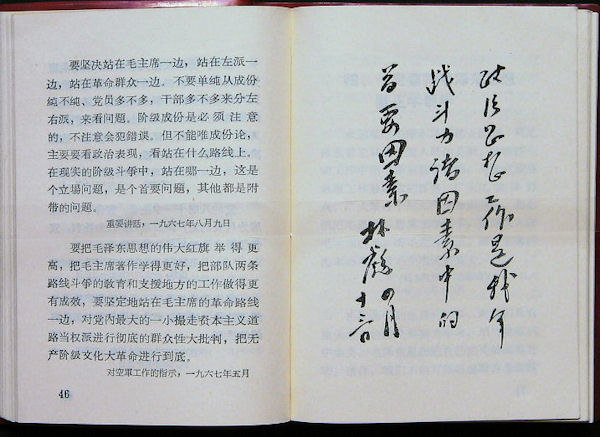 要坚决站在毛主席一边，站在左派一
边，站在革命群众一边。不要单纯从成份
纯不纯、党员多不多，干部多不多来分左
右派，来看问题。阶级成份是必须注意
的，不注意会犯错误。但不能唯成份论，
主要要看政治表现，看站在什么路线上。
在现实的阶级斗爭中，站在哪一边，这是
个立場问题，是个首要问题，其他都是附
带的问题。
重要讲話，一九六七年八月九日
要把毛泽东思想的伟大红旗举得更
高，把毛主席著作学得更好，把部队两条
路线斗爭的敎育和支援地方的工作做得更
有成效，要坚定地站在毛主席的革命路线
一边，对党內最大的一小撮走资本主义道
路当权派进行彻底的群众性大批判，把无
产阶级文化大革命进行到底。
对空軍工作的指示，一九六七年五月
46
政治思想工作是我军
战斗力诸因素中的
首要因素
林彪